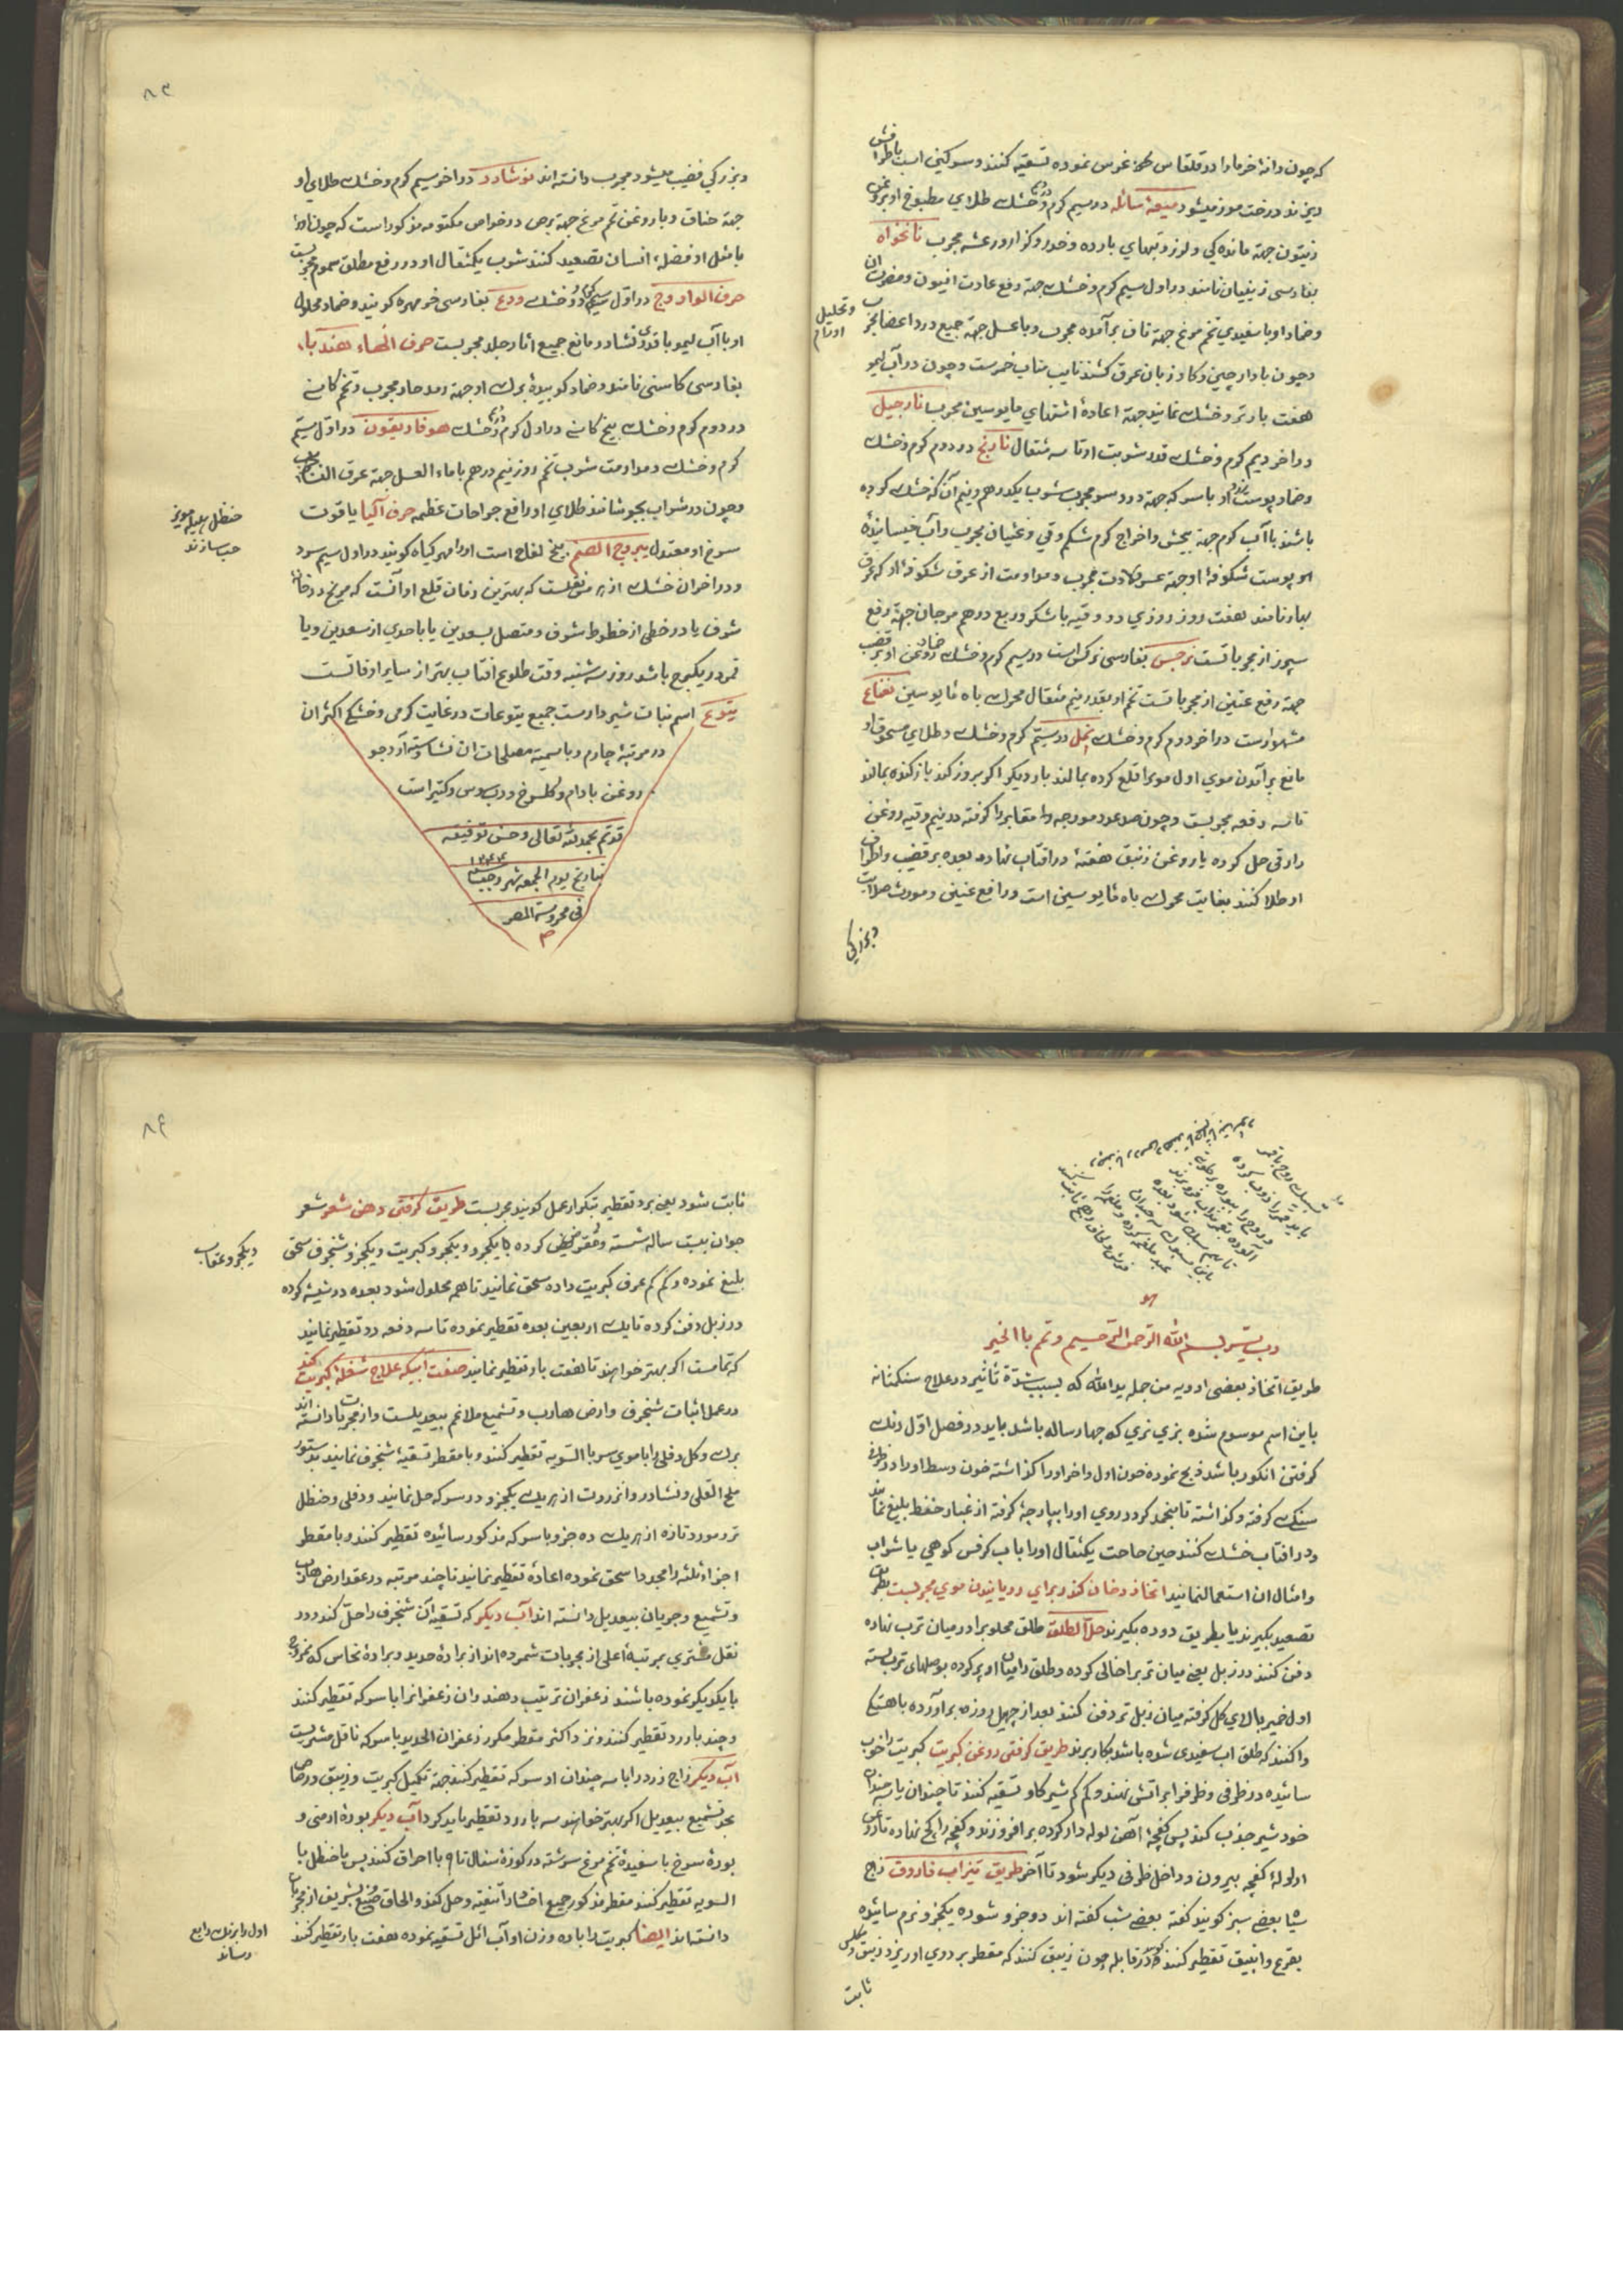 که چون دانهٔ خرما را در قلقاس غرس نموده تسقیه کنند و سرکین است باطرافش
ریزند درخت موز میشود میعهٔ سائله در سیم کرم و خشک طلای مطبوخ او بروغن
زیتون جهة ماندکی و لرز و تبهای بارده و خدر و کزاز و رعشه مجرب نانخواه
بفارسی زینیان نامند در اول سیم کرم و خشک جهة رفع عادت افیون و مضرت ان
و ضماد او با سفیدی تخم مرغ جهة ناف برآمده مجرب و با عسل جهة جمیع درد اعضا مجرب
و تحلیل اورام
و چون با دارچین و کاو زبان عرق کشند نایب مناب خمرست و چون در آب لیمو
هفت بار تر و خشک نمایند جهة اعادهٔ اشتهای مایوسین مجرب نارجیل
در اخر دیم کرم و خشک قدر شربت او تا سه مثقال نارنج در دوم کرم و خشک
و ضماد پوست زرد او با سرکه جهة درد سر مجرب شرب یکدرهم و نیم آن که خشک کرده
باشند با آب کرم جهة پیچش و اخراج کرم شکم و قی و غثیان مجرب و آب خیسانیدهٔ
او پوست شکوفهٔ او جهة عسر ولادت مجرب و مداومت از عرق شکوفهٔ او که عرق
بهار نامند هفت روز روزی دو وقیه با شکر و ربع درهم مرجان جهة رفع
سپرز از مجرباتست نرجس بفارسی نرکس است در سیم کرم و خشک ضماد روغن او بر قضیب
جهة رفع عنین از مجرباتست تخم او بقدر نیم مثقال محرک باه مایوسین نعناع
مشهوارست در اخر دوم کرم و خشک نمل در سیّم کرم و خشک و طلای مسحوق او
مانع برآمدن موی اول مو را قلع کرده بمالند بار دیکر اکر بروز کند باز کنده بمالند
تا سه دفعه مجربست و چون صد عدد مورچه مقابر را کرفته در نیم وقیه روغن
رازقی حل کرده یا روغن زنبق هفتهٔ در افتاب نهاده بعده بر قضیب و اطراف
او طلا کنند بغایت محرک باه مایوسین است و رافع عنین و مورث صلابت
و بزرکی
۸۳
و بزرکی قضیب میشود مجرب دانسته اند نوشادر در اخر سیم کرم و خشک طلای او
جهة خناق و با روغن تخم مرغ جهة برص در خواص مکتومه مذکور است که چون او را
با مثل او فضلهٔ انسان تصعید کنند شرب یکمثقال او در رفع مطلق سموم مجربست
حرف الواو وج در اول سیم کرم و خشک ودع بفارسی خر مهره کویند و ضماد محلول
او با آب لیمو با قدری نشادر مانع جمیع اثار جلد مجربست حرف الهاء هندبا
بفارسی کاسنی نامند و ضماد کوبیدهٔ برک او جهة رمد حار مجرب و تخم کاسنی
در دوم کرم و خشک بیخ کاسنی در اول کرم و خشک هوفاریقون در اول سیّم
کرم و خشک و مداومت شرب تخم روز نیم درهم با ماء العسل جهة عرق النسا مجرب
و چون در شراب بجوشانند طلای او رافع جراحات عظیمه حرف الیا یاقوت
حنظل هلیله مویز
حب سازند
سرخ او معتدل یبروج الصنم بیخ لفاح است او را مهر کیاه کویند در اول سیم سرد
و در اخر ان خشک از هرمس نقلست که بهترین زمان قلع او آنست که مریخ در خانهٔ
شرف یا در خطی از خطوط شرف و متصل بسعدین یا باحدی از سعدین و یا
قمر در یکبرج باشد روز سه شنبه وقت طلوع افتاب بهتر از سایر اوقاتست
یتوع اسم نبات شیر دارست جمیع یتوعات در غایت کرمی و خشکی اکثر ان
در مرتبهٔ چارم و با سمیه مصلحات ان نشاسته و آرد جو
روغن بادام و کلسرخ و رب سوس و کتیرا است
قد تم بحمد لله تعالی و حسن توفیقه
بتاریخ یوم الجمعه شهر رجب
فی محروسة المصر
م
رب یسّر بسم الله الرحمن الرحیم و تمم بالخیر
طریق اتخاذ بعضی ادویه من جمله ید الله که بسبب شدّة تاثیر در علاج سنک مثانه
باین اسم موسوم شده بزی نری که چهار ساله باشد باید در فصل اول رنک
کرفتن انکور باشد ذبح نموده خون اول و اخر او را کذاشته خون وسط او را در ظرف
سنک کرفته و کذاشته تا منجمد کردد روی او را بپارچهٔ کرفته از غبار حفظ بلیغ نمایند
و در افتاب خشک کنند حین حاجت یکمثقال او را با اب کرفس کوهی یا شراب
و امثال ان استعمال نمایند اتخاذ دخان کندر برای رویانیدن موی مجربست بطریق
تصعید بکیرند یا بطریق دوده بکیرند حل الطلق طلق محلوب را در میان ترب نهاده
دفن کنند در زبل یعنی میان ترب را خالی کرده و طلق را میان او پر کرده بوصلهای ترب بسته
اول خمیر بالای کل کرفته میان زبل تر دفن کنند بعد از چهل روزه برآورده باهستکی
وا کنند که طلق اب سفیدی شده باشد بکار برند طریق کرفتن روغن کبریت کبریت را خوب
سائیده در ظرفی و ظرف را بر اتش نهند و کم کم شیر کاو تسقیه کنند تا چندان یا سه چندان
خود شیر جذب کند پس کفچهٔ آهن لوله دار کرده بر افروزند و کفچه را کج نهاده تا روغن
از لولهٔ کفچه بیرون و داخل ظرفی دیکر شود تا آخر طریق تیزاب فاروق زاج
سیاه بعضی سبز کویند کفته بعضی شب کفته اند دو جزو شوره یکجزو نرم سائیده
بقرع و انبیق تقطیر کنند و در قابله چون زیبق کنند که مقطر بر روی او ریزد زیبق و طلق
ثابت
۸۴
ثابت شود یعنی برد تقطیر بتکرار عمل کویند مجربست طریق کرفتن دهن شعر شعر
جوان بیست ساله شسته و مقرض کرده یکجزو و یکجزو کبریت و یکجزو شنجرف سحق
و یکجزو عقاب
بلیغ نموده و کم کم عرق کبریت داده سحق نمایند تا هم محلول شود بعده در شیشه کرده
در زبل دفن کرده تا یک اربعین بعده تقطیر نموده تا سه دفعه رد تقطیر نمایند
که تمامست اکر بهتر خواهند تا هفت بار تقطیر نمایند صفت آبیکه علاج شعلهٔ کبریت کند
در عمل اثبات شنجرف و ارض هارب و تشمیع ملاغم بیعدیلست و از مجربات دانسته اند
برک و کل دفلی را با موی سر بالسویه تقطیر کنند و با مقطر تسقیهٔ شنجرف نمایند بدستور
ملح القلی و نشادر و انزروت از هریک یکجزو در سرکه حل نمایند و دفلی و حنظل
تر و مورد تازه از هریک ده جزو با سرکه مذکور سائیده تقطیر کنند و با مقطر
اجزاء ثلثه را مجددا سحق نموده اعادهٔ تقطیر نمایند تا چند مرتبه در عقد ارض هارب
و تشمیع و جریان بیعدیل دانسته اند آب دیکر که تسقیهٔ آن شنجرف را حل کند و در
نقل مشتری بمرتبهٔ اعلی از مجربات شمرده اند از برادهٔ حدید و برادهٔ نحاس که ممزوج
با یکدیکر نموده باشند زعفران ترتیب دهند و ان زعفران را با سرکه تقطیر کنند
و چند بار رد تقطیر کنند و نزد اکثر مقطر مکرر زعفران الحدید با سرکه ناقل مشتریست
آب دیکر زاج زرد را با سه چندان او سرکه تقطیر کنند جهة تکمیل کبریت و زیبق و رصاص
بجد تشمیع بیعدیل اکر بهتر خواهند سه بار رد تقطیر باید کرد آب دیکر بورهٔ ارمنی و
بورهٔ سرخ با سفیدهٔ تخم مرغ سرشته در کوزهٔ سفال تا ۹ بار احراق کنند پس با حنظل با
السویه تقطیر کنند مقطر مذکور جمیع اجساد را تنقیه و حل کند و الحاق وضیع بشریف از مجربات
دانسته اند ایضا کبریت را با ده وزن او آب اثل تسقیه نموده هفت بار تقطیر کنند
اول را بزیک رابع
رساند